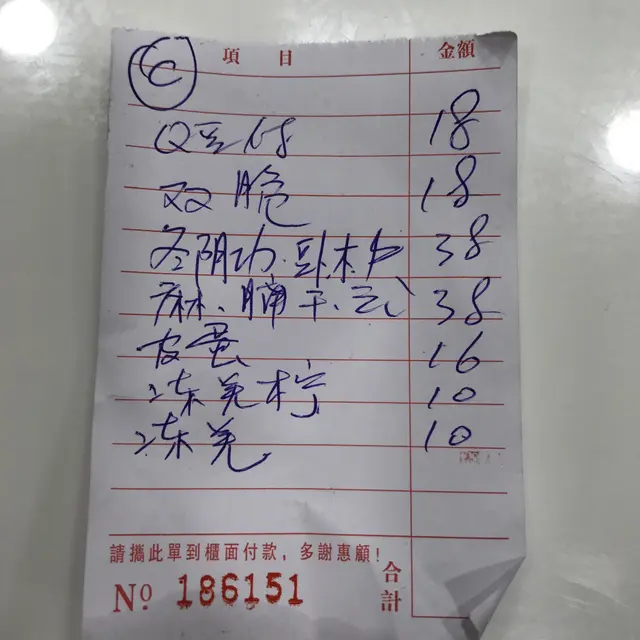 C
項 目 金額
Q豆付 18
双脆 18
冬阴功. 38
麻、腩 38
皮蛋 16
冻羌柠 10
冻羌 10
請攜此單到櫃面付款，多謝惠顧！
合計
Nº 186151